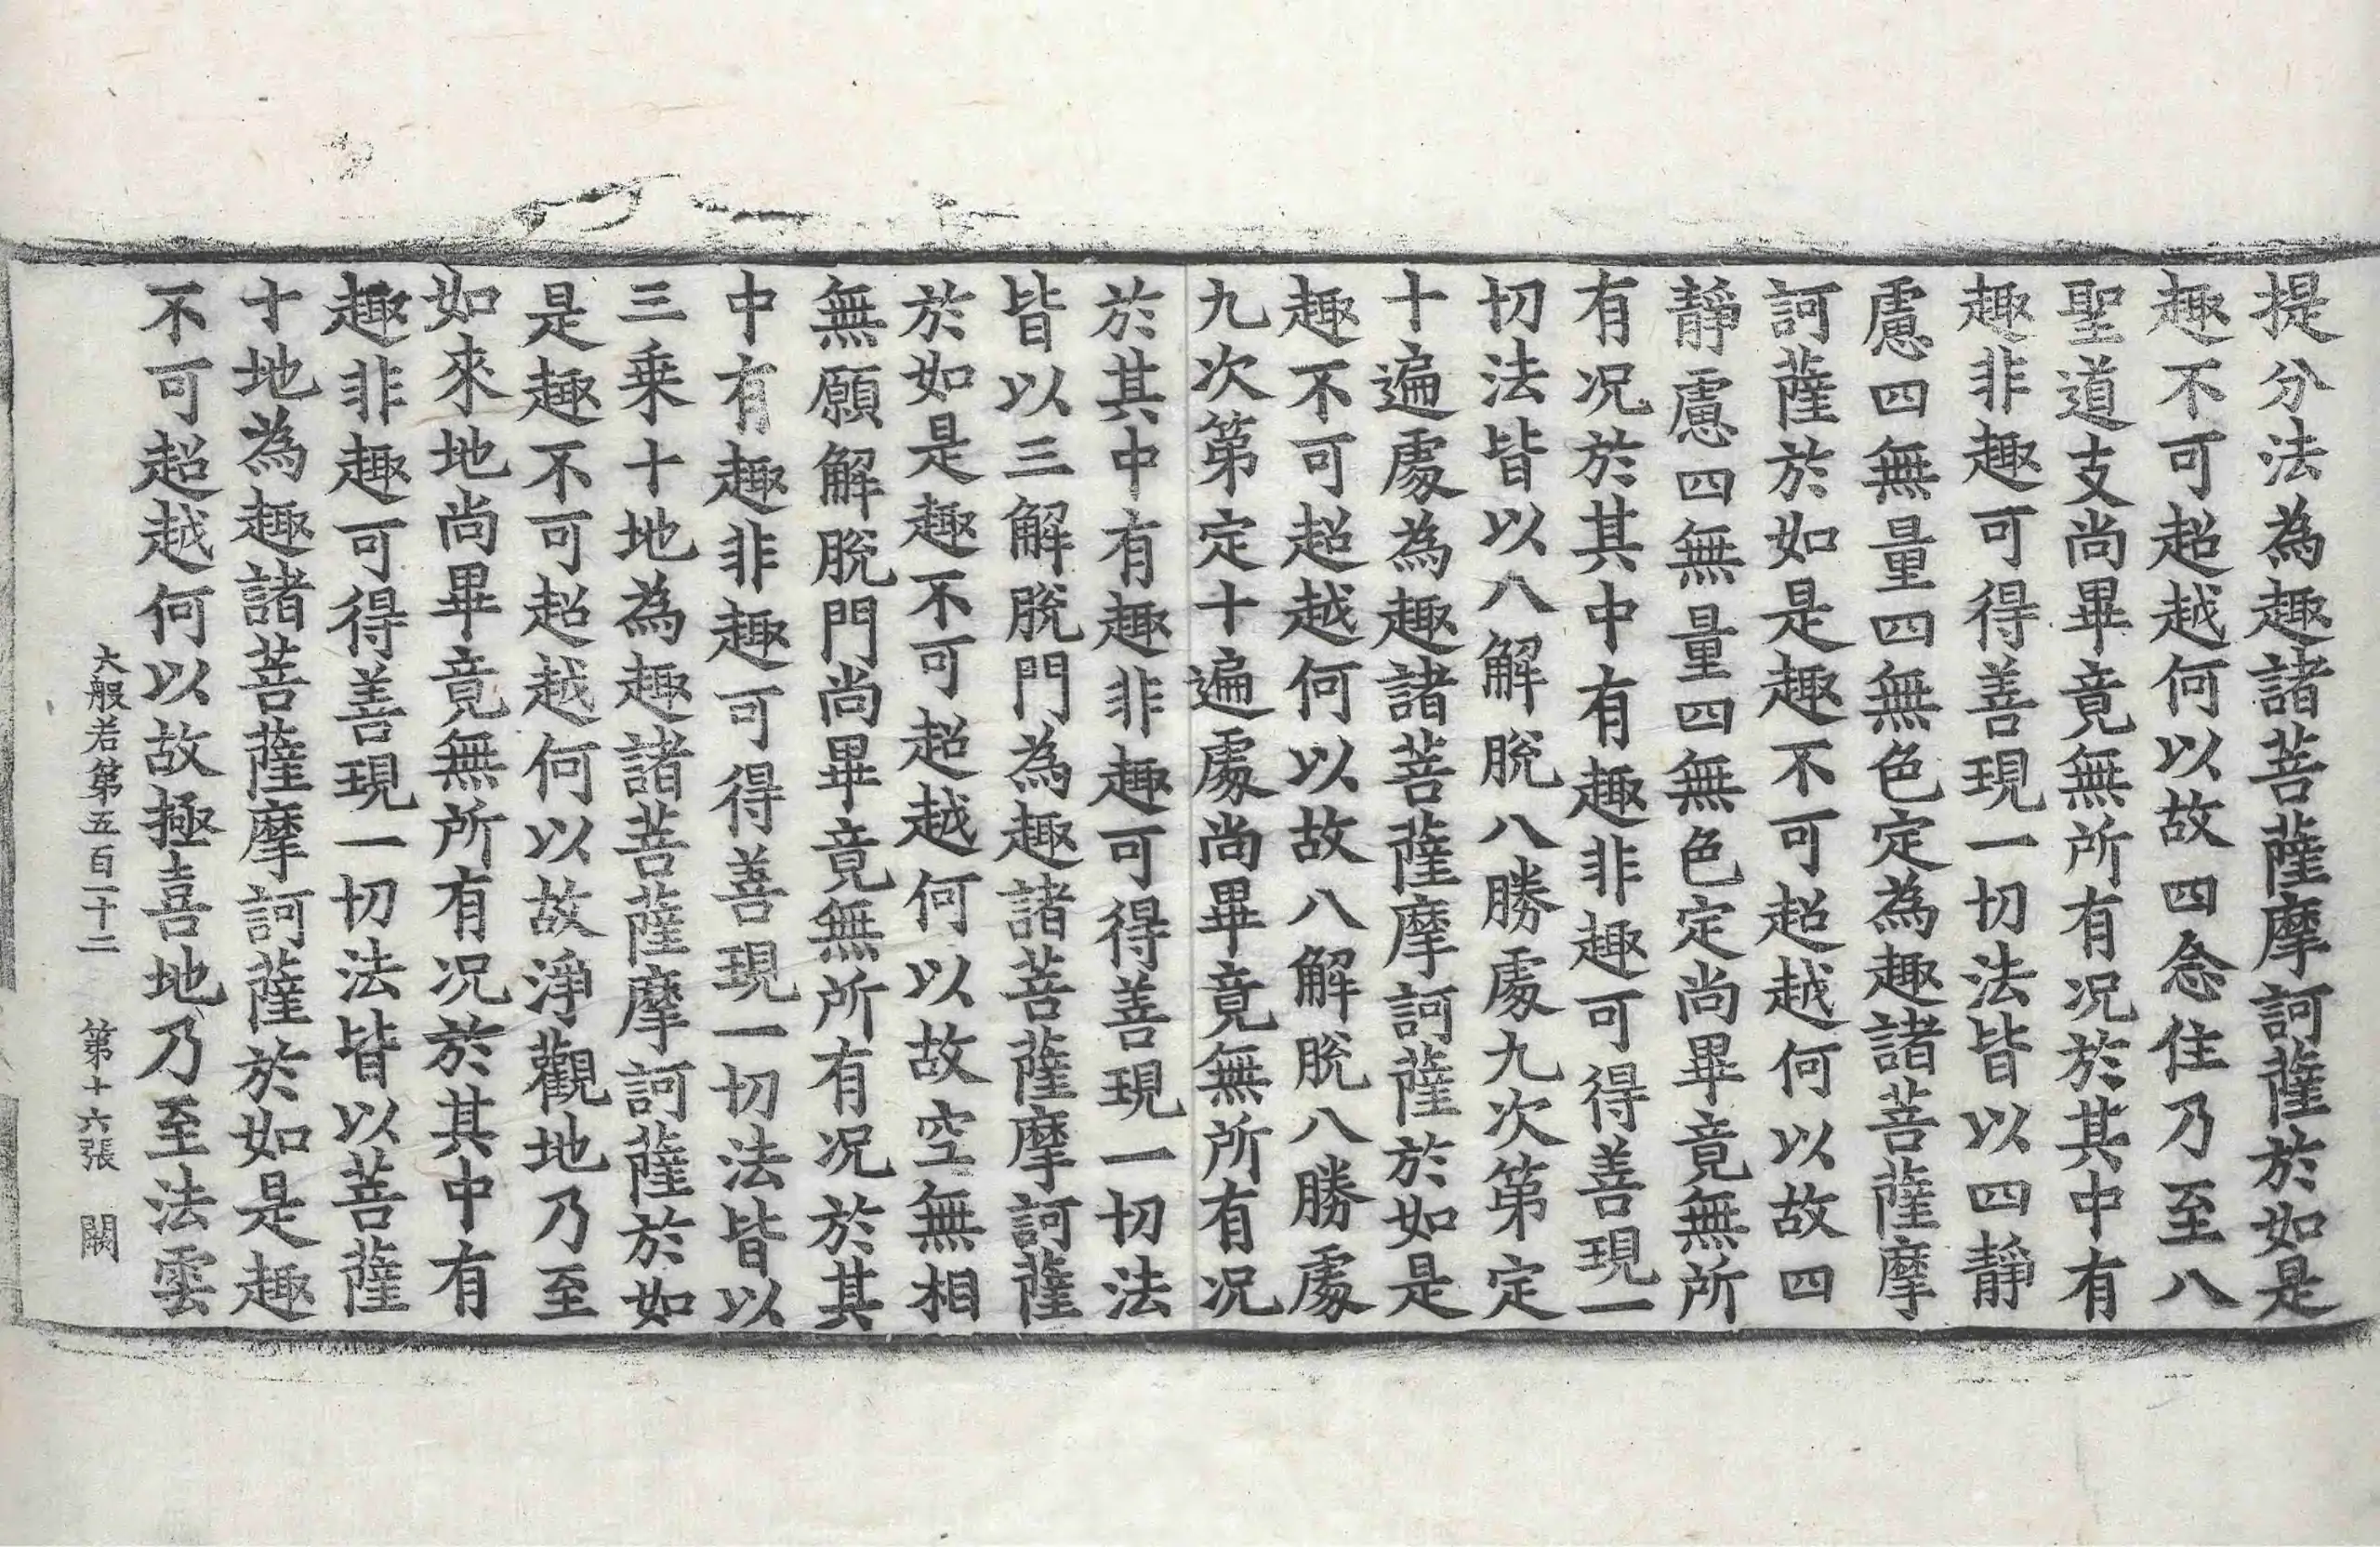 提分法為趣諸菩薩摩訶薩於如是
趣不可超越何以故四念住乃至八
聖道支尚畢竟無所有况於其中有
趣非趣可得善現一切法皆以四靜
慮四無量四無色定為趣諸菩薩摩
訶薩於如是趣不可超越何以故四
靜慮四無量四無色定尚畢竟無所
有况於其中有趣非趣可得善現一
切法皆以八解脫八勝處九次第定
十遍處為趣諸菩薩摩訶薩於如是
趣不可超越何以故八解脫八勝處
九次第定十遍處尚畢竟無所有况
於其中有趣非趣可得善現一切法
皆以三解脫門為趣諸菩薩摩訶薩
於如是趣不可超越何以故空無相
無願解脫門尚畢竟無所有况於其
中有趣非趣可得善現一切法皆以
三乗十地為趣諸菩薩摩訶薩於如
是趣不可超越何以故淨觀地乃至
如來地尚畢竟無所有况於其中有
趣非趣可得善現一切法皆以菩薩
十地為趣諸菩薩摩訶薩於如是趣
不可超越何以故極喜地乃至法雲
大般若第五百一十二 第十六張 闕